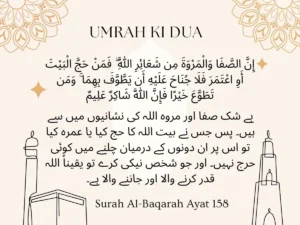 UMRAH KI DUA
إِنَّ الصَّفَا وَالْمَرْوَةَ مِن شَعَائِرِ اللَّهِ ۖ فَمَنْ حَجَّ الْبَيْتَ
أَوِ اعْتَمَرَ فَلَا جُنَاحَ عَلَيْهِ أَن يَطَّوَّفَ بِهِمَا ۚ وَمَن
تَطَوَّعَ خَيْرًا فَإِنَّ اللَّهَ شَاكِرٌ عَلِيمٌ
بے شک صفا اور مروہ اللہ کی نشانیوں میں سے
ہیں۔ پس جس نے بیت اللہ کا حج کیا یا عمرہ کیا
تو اس پر ان دونوں کے درمیان چلنے میں کوئی
حرج نہیں۔ اور جو شخص نیکی کرے تو یقیناً اللہ
قدر کرنے والا اور جاننے والا ہے۔
Surah Al-Baqarah Ayat 158